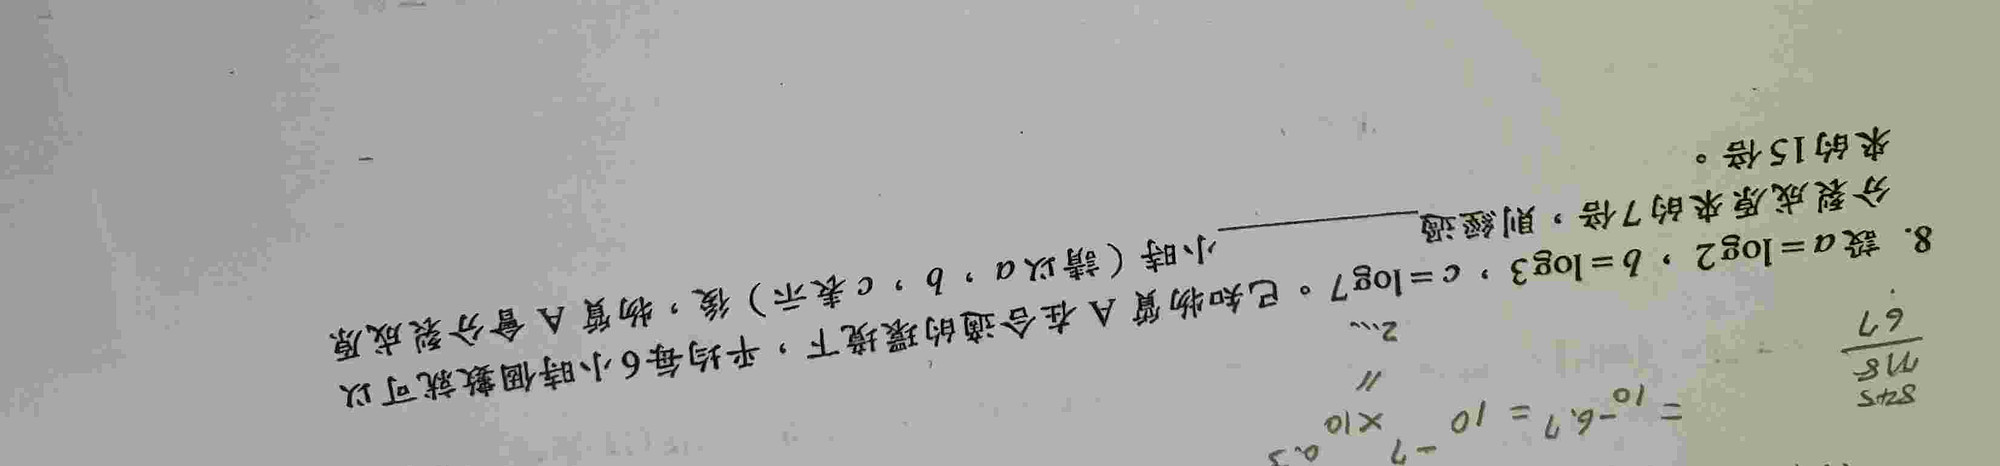 = 10^-6.7 = 10^-7 × 10^0.3
〃
2...
845
67
8. 設a=log2,b=log3,c=log7。已知物質A在合適的環境下,平均每6小時個數就可以
分裂成原來的7倍,則經過________小時(請以a,b,c表示)後,物質A會分裂成原
來的15倍。